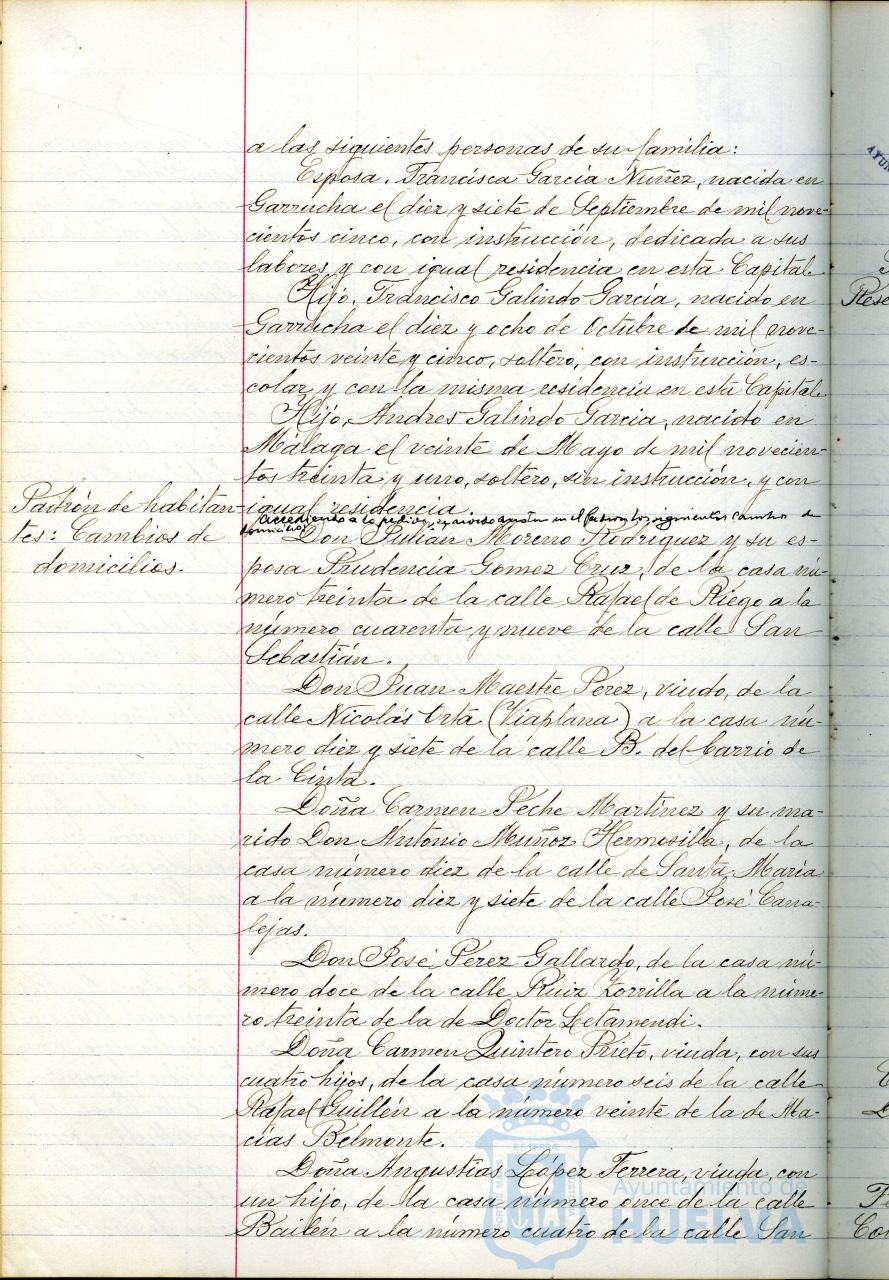 a las siguientes personas de su familia:
Esposa. Francisca García Nuñez, nacida en
Garrucha el diez y siete de Septiembre de mil nove-
cientos cinco, con instrucción, dedicada a sus
labores y con igual residencia en esta Capital.
Hijo. Francisco Galindo García, nacido en
Garrucha el diez y ocho de Octubre de mil nove-
cientos veinte y cinco, soltero, con instrucción, es-
colar y con la misma residencia en esta Capital.
Hijo, Andres Galindo García, nacido en
Málaga el veinte de Mayo de mil novecien-
tos treinta y uno, soltero, sin instrucción, y con
igual residencia.
Padrón de habitan-
tes: Cambios de
domicilios.
Accediendo a lo pedido, se acordo anotar en el Padron los siguientes cambios de
domicilios
Don Julián Moreno Rodríguez y su es-
posa Prudencia Gomez Cruz, de la casa nú-
mero treinta de la calle Rafael de Riego a la
número cuarenta y nueve de la calle San
Sebastián.
Don Juan Maestre Perez, viudo, de la
calle Nicolás Orta (Viaplana) a la casa nú-
mero diez y siete de la calle B. del barrio de
la Cinta.
Doña Carmen Peche Martínez y su ma-
rido Don Antonio Muñoz Hermosilla, de la
casa número diez de la calle de Santa María
a la número diez y siete de la calle José Cana-
lejas.
Don José Pérez Gallardo, de la casa nú-
mero doce de la calle Ruiz Zorrilla a la núme-
ro treinta de la de Doctor Letamendi.
Doña Carmen Quintero Prieto, viuda, con sus
cuatro hijos, de la casa número seis de la calle
Rafael Guillén a la número veinte de la de Ma-
cías Belmonte.
Doña Angustias López Ferrera, viuda, con
un hijo, de la casa número once de la calle
Bailén a la número cuatro de la calle San
Ayuntamiento de
HUELVA